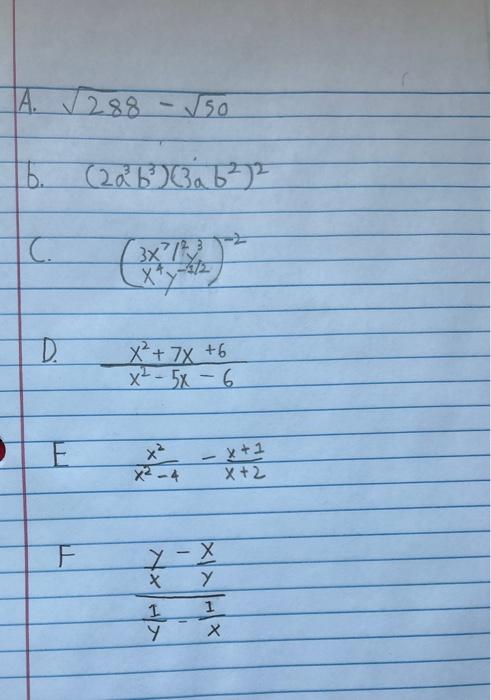 A. √288 - √50
b. (2a³b³)(3ab²)²
C. (3x^7/2y³ / x⁴y^-1/2)^-2
D. x² + 7x + 6
x² - 5x - 6
E x²/x²-4 - x+1/x+2
F y/x - x/y
1/y - 1/x